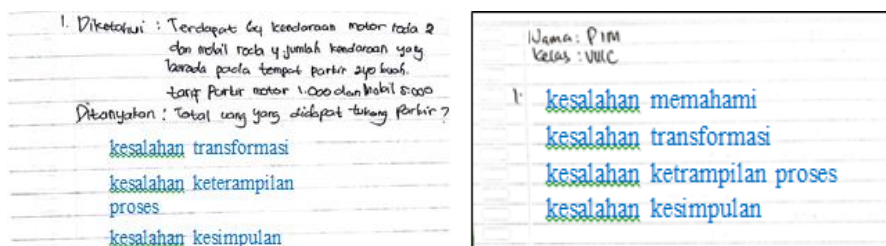 1. Diketahui : Terdapat 64 kendaraan motor roda 2
dan mobil roda 4 jumlah kendaraan yang
berada pada tempat parkir 240 buah.
tarif Parkir motor 1.000 dan Mobil 5.000
Ditanyakan : Total uang yang didapat tukang Parkir ?
kesalahan transformasi
kesalahan keterampilan
proses
kesalahan kesimpulan
Nama : PIM
kelas : VIIIC
1.
kesalahan memahami
kesalahan transformasi
kesalahan ketrampilan proses
kesalahan kesimpulan